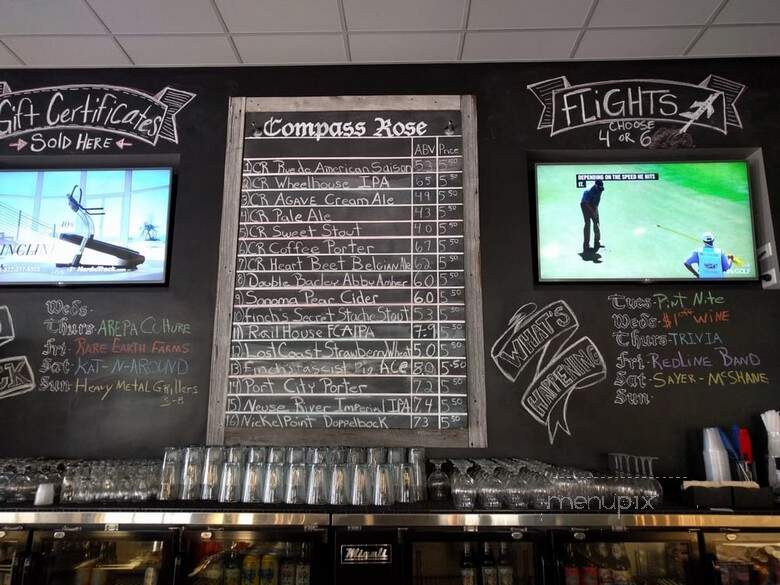 Gift Certificates
SOLD HERE
Compass Rose
ABV Price
1) CR Rue de American Saison 5.2 5.50
2) CR Wheelhouse IPA 6.5 5.50
3) CR Agave Cream Ale 4.9 5.50
4) CR Pale Ale 4.3 5.50
5) CR Sweet Stout 4.0 5.50
6) CR Coffee Porter 6.7 5.50
7) CR Heart Beet Belgian Ale 6.2 5.50
8) Double Barley Abby Amber 6.0 5.50
9) Sonoma Pear Cider 6.0 5.50
10) Finch's Secret Stache Stout 5.3 5.50
11) Rail House FCAIPA 7.9 5.50
12) Lost Coast Strawberry Wheat 5.0 5.50
13) Finch's Fascist Pig ACE 8.0 5.50
14) Port City Porter 7.2 5.50
15) Neuse River Imperial IPA 7.4 5.50
16) Nickel Point Doppelbock 7.3 5.50
FLIGHTS
CHOOSE
4 OR 6
DEPENDING ON THE SPEED HE HITS
IT.
INCLINE
NordicTrack
Weds-
Thurs- AREPA CULTURE
Fri- RARE EARTH FARMS
Sat- KAT-N-AROUND
Sun- HEAVY METAL GRILLERS
3-8
WHAT'S
HAPPENING
Tues- Pint Nite
Weds- $1 OFF WINE
Thurs- TRIVIA
Fri- REDLINE BAND
Sat- SAYER-McSHANE
Sun-
menupix
Migali